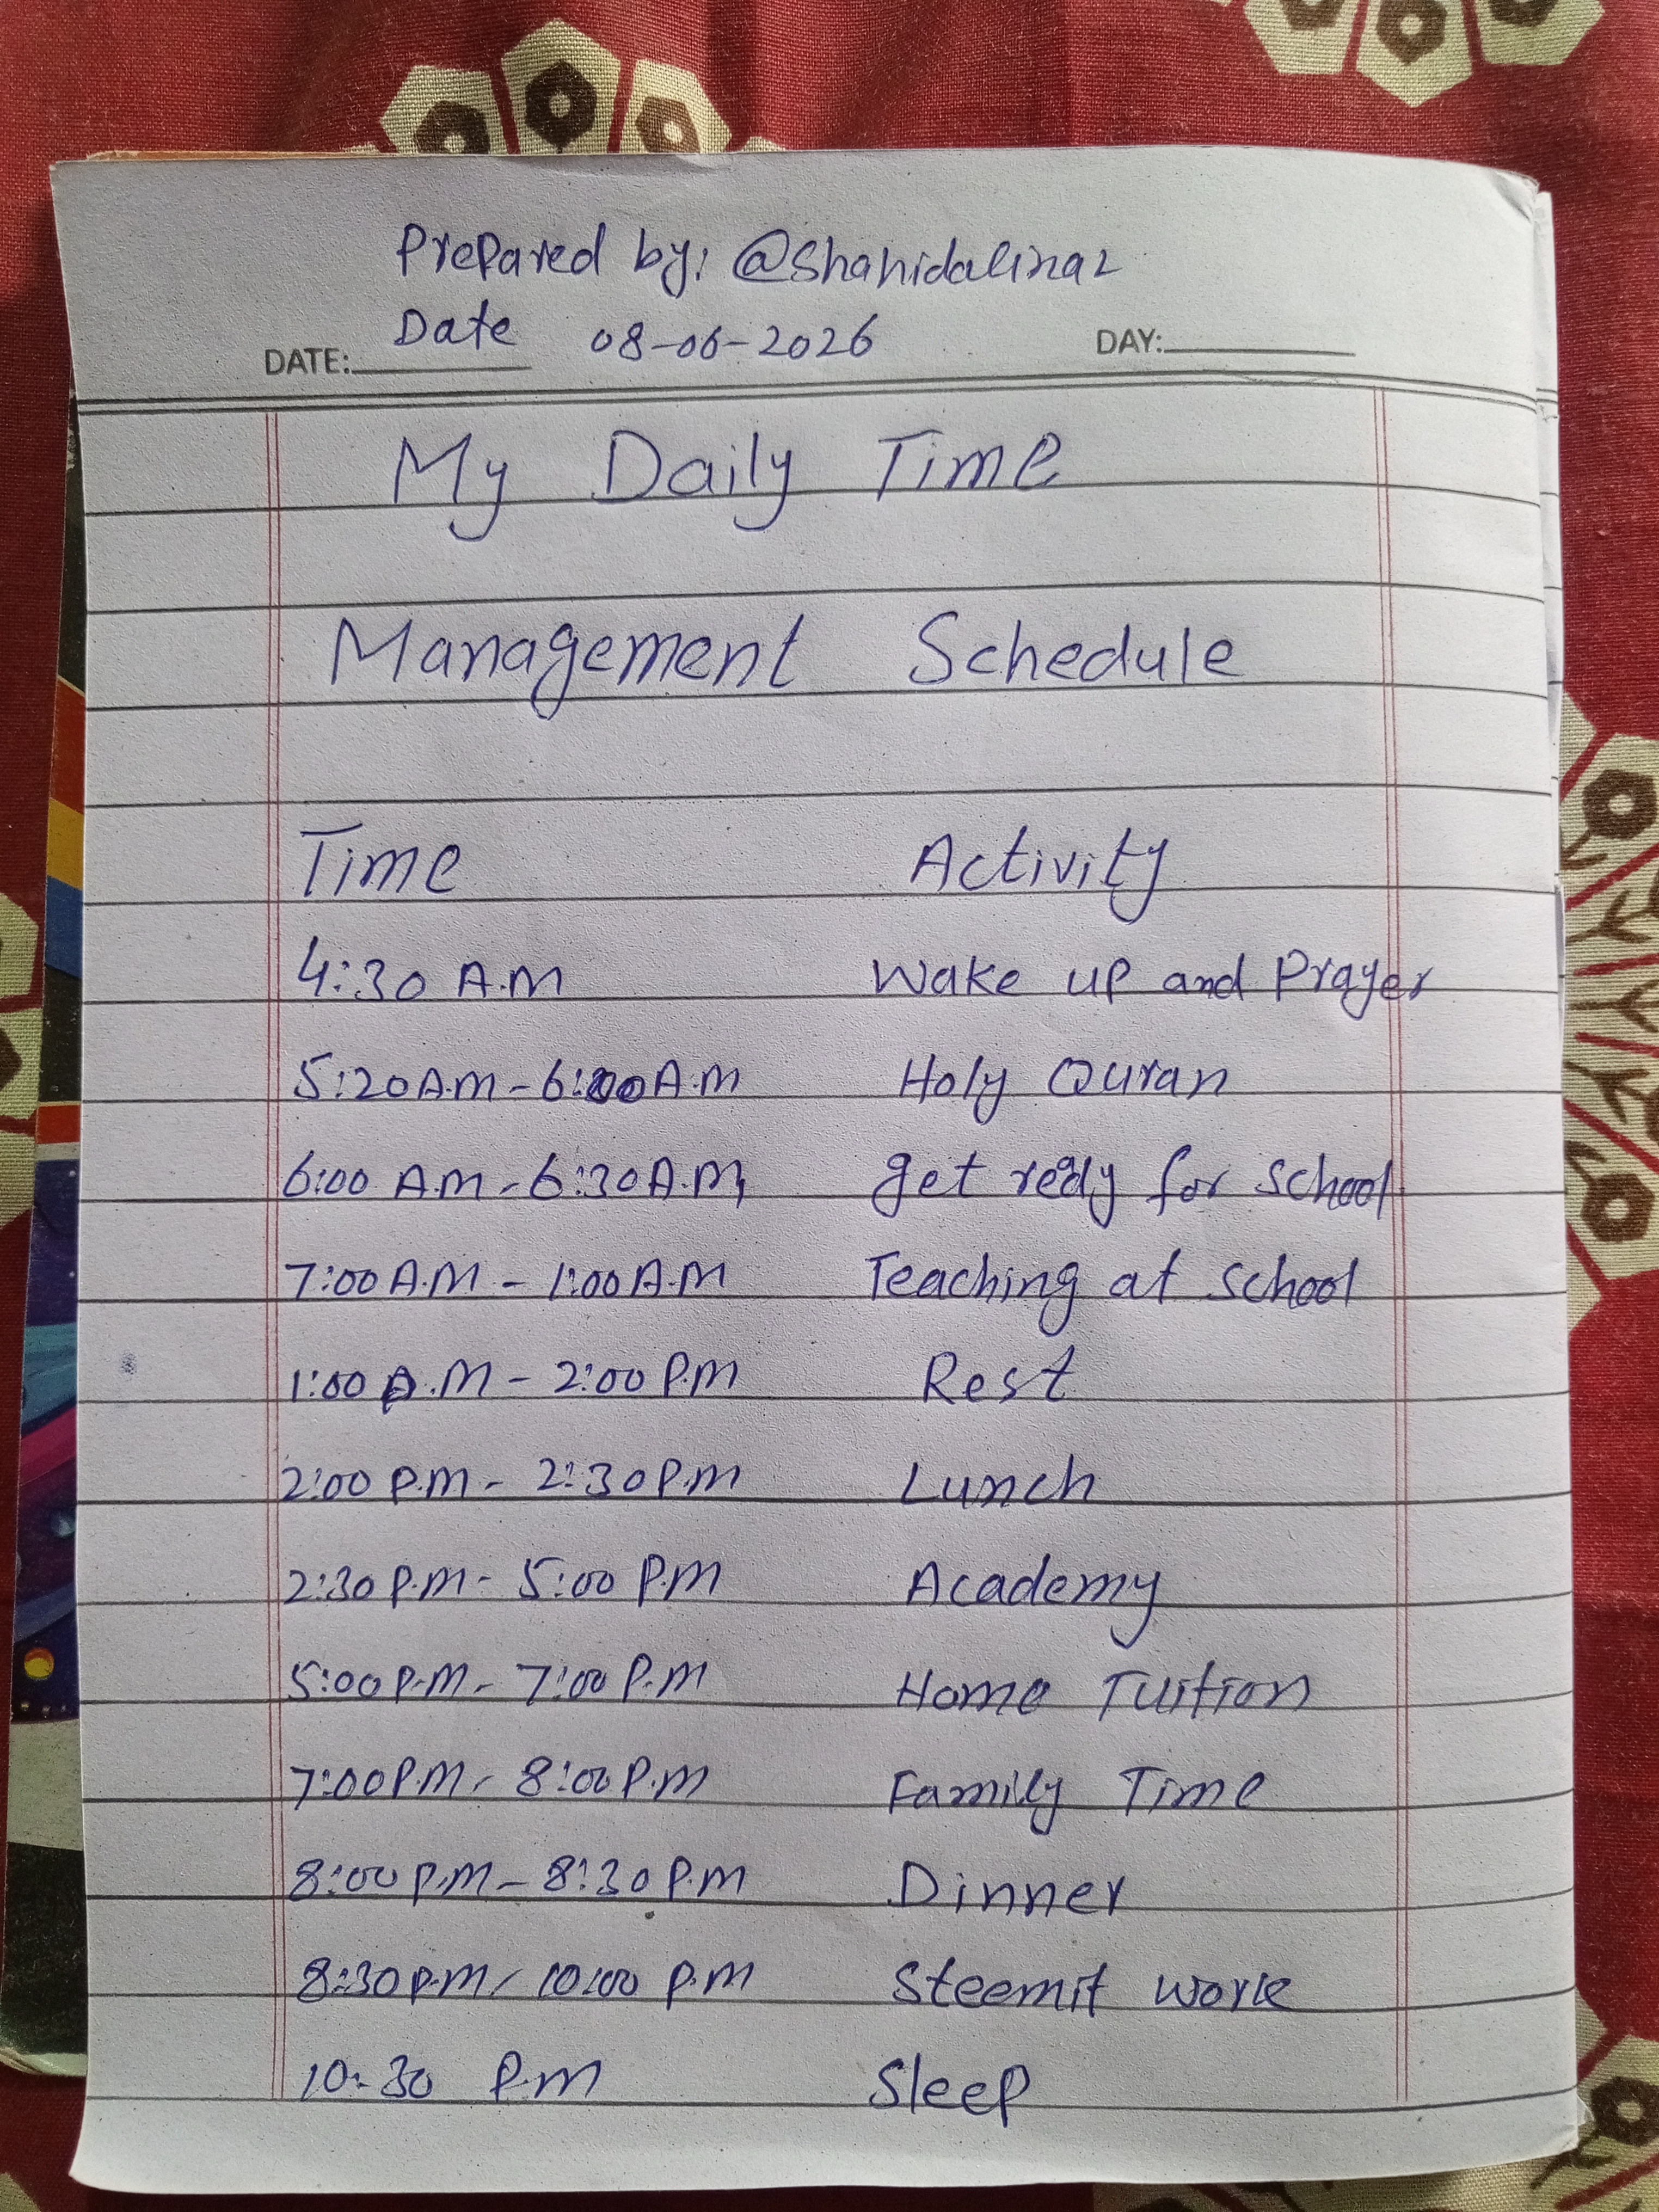 Prepared by: @shahidalinaz
Date 08-06-2026
DATE: DAY:
My Daily Time
Management Schedule
Time Activity
4:30 A.M Wake up and Prayer
5:20 A.M - 6:00 A.M Holy Quran
6:00 A.M - 6:30 A.M get redy for school
7:00 A.M - 1:00 A.M Teaching at school
1:00 P.M - 2:00 P.M Rest
2:00 P.M - 2:30 P.M Lunch
2:30 P.M - 5:00 P.M Academy
5:00 P.M - 7:00 P.M Home Tuition
7:00 P.M - 8:00 P.M Family Time
8:00 P.M - 8:30 P.M Dinner
8:30 P.M - 10:00 P.M Steemit work
10:30 P.M Sleep